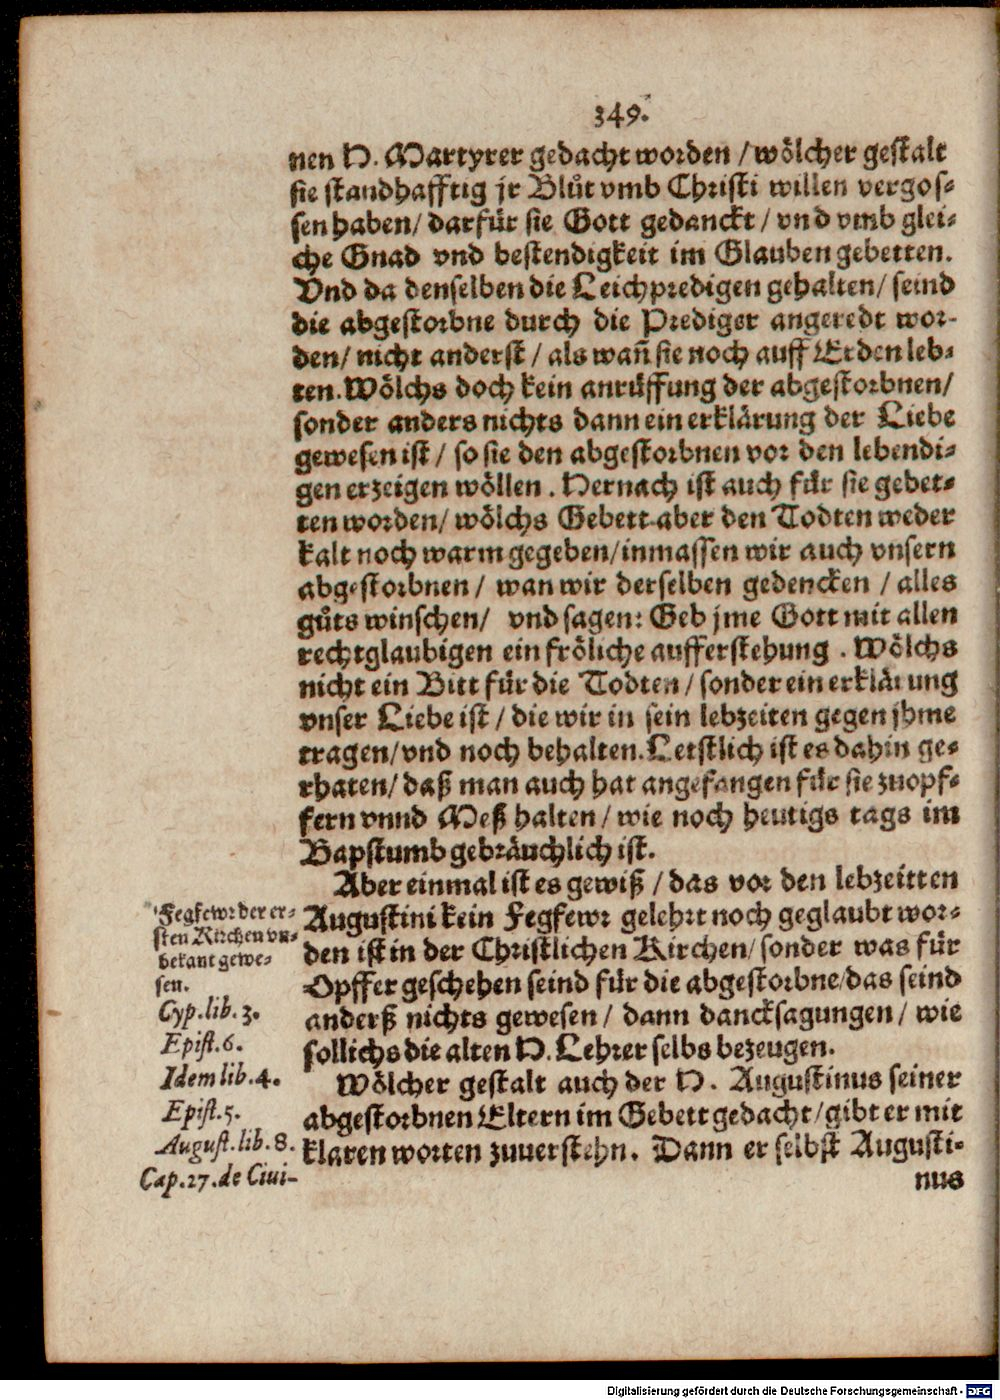 349.
nen H. Martyrer gedacht worden / wölcher gestalt
sie standhafftig jr Blůt vmb Christi willen vergos-
sen haben/ darfür sie Gott gedanckt / vnd vmb glei-
che Gnad vnd bestendigkeit im Glauben gebetten.
Vnd da denselben die Leichpredigen gehalten/ seind
die abgestorbne durch die Prediger angeredt wor-
den/ nicht anderst / als wañ sie noch auff Erden leb-
ten. Wölchs doch kein anrüffung der abgestorbnen/
sonder anders nichts dann ein erklärung der Liebe
gewesen ist / so sie den abgestorbnen vor den lebendi-
gen erzeigen wöllen. Hernach ist auch für sie gebet-
ten worden/ wölchs Gebett aber den Todten weder
kalt noch warm gegeben/ inmassen wir auch vnsern
abgestorbnen / wan wir derselben gedencken / alles
gůts winschen/ vnd sagen: Geb jme Gott mit allen
rechtglaubigen ein fröliche aufferstehung. Wölchs
nicht ein Bitt für die Todten / sonder ein erklärung
vnser Liebe ist / die wir in sein lebzeiten gegen jhme
tragen/ vnd noch behalten. Letstlich ist es dahin ge-
rhaten/ daß man auch hat angefangen für sie zuopf-
fern vnnd Meß halten / wie noch heutigs tags im
Bapstumb gebräuchlich ist.
Aber einmal ist es gewiß / das vor den lebzeitten
Augustini kein Fegfewr gelehrt noch geglaubt wor-
den ist in der Christlichen Kirchen/ sonder was für
Opffer geschehen seind für die abgestorbne/ das seind
anderß nichts gewesen / dann dancksagungen / wie
sollichs die alten H. Lehrer selbs bezeugen.
Wölcher gestalt auch der H. Augustinus seiner
abgestorbnen Eltern im Gebett gedacht / gibt er mit
klaren worten zuuerstehn. Dann er selbst Augusti-
nus
Fegfewr der er-
sten Kirchen vn-
bekant gewe-
sen.
Cyp. lib. 3.
Epist. 6.
Idem lib. 4.
Epist. 5.
August. lib. 8.
Cap. 27. de Ciui-
Digitalisierung gefördert durch die Deutsche Forschungsgemeinschaft - DFG